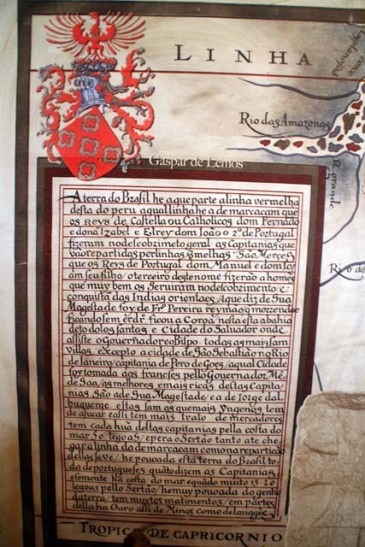 LINHA
Rio das Amazonas
R. grande
Gaspar de Lemos
A terra do Brasil he aqueparte alinha vermelha
desta do peru aquallinhahe a de marcacam que
os REVS de Castella ou Catholicos dom Fernão
e dona Izabel e Elrey dom João o 2º de Portugal
fizeram nodescobzimeto geral as Capitanias que
vão repartidas perlinhas São Merces
que os Reys de Portugal dom Manuel e dom
am seu filho oterceiro deste nome fizerão a homes
que muy bem os Seruiram nodescobzimento e
conquista das Indias orientaes Aque diz de Sua
Magestade foy de Frº Pereira
ficando sem erdrº ficou a Coroa nesta esta a bahia
detodolos santos e Cidade do Saluador onde
assiste o Governador e Bispo todas as mais sam
Villas excepto a cidade de São Sebastião no Rio
de Janeiro capitania de Pero de Goes aqual Cidade
for tomada aos franceses pello Gouernador Mé
de Saa as melhores e mais ricas destas Capita
nias São ade Sua Magestade e a de Jorge dal
buquerque estas sam as que mais Yngenos tem
de açucar e alli tem mais Trato de Mercadores
tem cada huã destas capitanias pella costa do
mar 50 legoas e pera o Sertão tanto ate che
gar alinha da demarcacam como na reparti
he pouoada esta terra do Brasil to
da de portugueses quãto dizem as Capitanias
somente na costa do mar e quãdo muito 15 20
legoas pello Sertão he muy pouoada do gentio
da terra tem muytos matimentos e em partes
della ha Ouro
TROPICO DE CAPRICORNIO